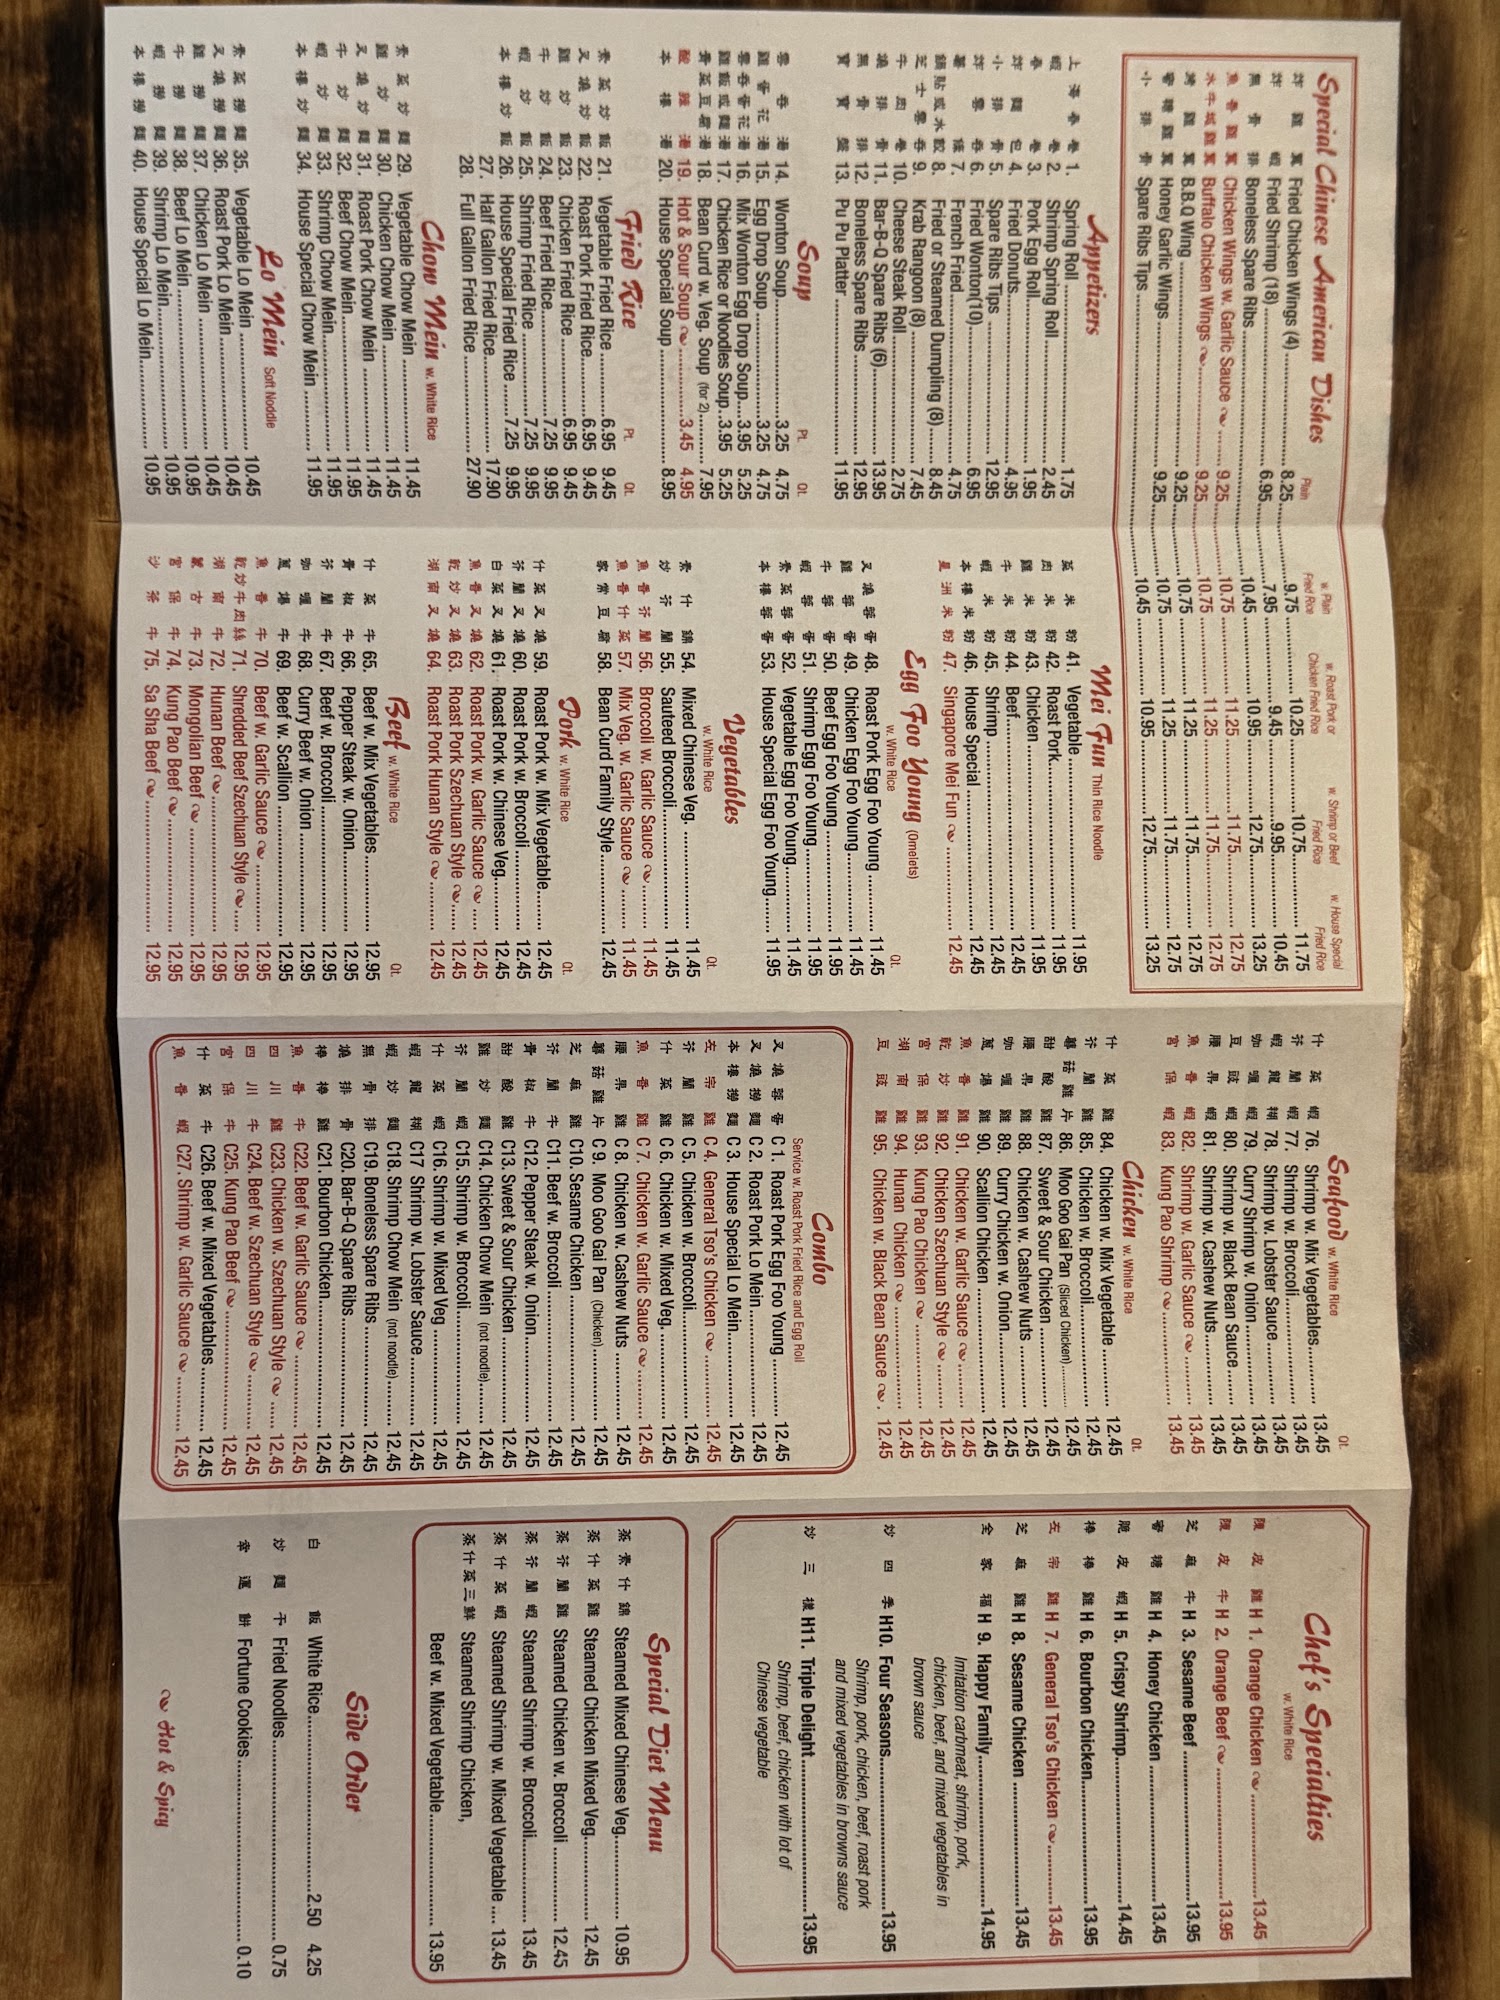 Special Chinese American Dishes
Plain
w. Plain Fried Rice
w. Roast Pork or Chicken Fried Rice
w. Shrimp or Beef Fried Rice
w. House Special Fried Rice
炸雞翼 Fried Chicken Wings (4) 8.25 9.75 10.25 10.75 11.75
炸蝦 Fried Shrimp (18) 6.95 7.95 9.45 9.95 10.45
無骨排 Boneless Spare Ribs 10.45 10.95 12.75 13.25
魚香雞翼 Chicken Wings w. Garlic Sauce 9.25 10.75 11.25 11.75 12.75
水牛城雞翼 Buffalo Chicken Wings 9.25 10.75 11.25 11.75 12.75
烤雞翼 B.B.Q Wing 9.25 10.75 11.25 11.75 12.75
蜜糖雞翼 Honey Garlic Wings 9.25 10.75 11.25 11.75 12.75
小排骨 Spare Ribs Tips 10.45 10.95 12.75 13.25
Appetizers
上海春卷 1. Spring Roll 1.75
蝦卷 2. Shrimp Spring Roll 2.45
春卷 3. Pork Egg Roll 1.95
炸麵包 4. Fried Donuts 4.95
小排骨 5. Spare Ribs Tips 12.95
炸雲吞 6. Fried Wonton(10) 6.95
薯條 7. French Fried 4.75
鍋貼或水餃 8. Fried or Steamed Dumpling (8) 8.45
芝士雲吞 9. Krab Rangoon (8) 7.45
牛肉卷 10. Cheese Steak Roll 2.75
燒排骨 11. Bar-B-Q Spare Ribs (6) 13.95
無骨排 12. Boneless Spare Ribs 12.95
寶寶盤 13. Pu Pu Platter 11.95
Soup
Pt. Qt.
雲吞湯 14. Wonton Soup 3.25 4.75
蛋花湯 15. Egg Drop Soup 3.25 4.75
雲吞蛋花湯 16. Mix Wonton Egg Drop Soup 3.95 5.25
雞飯或麵湯 17. Chicken Rice or Noodles Soup 3.95 5.25
青菜豆腐湯 18. Bean Curd w. Veg. Soup (for 2) 7.95
酸辣湯 19. Hot & Sour Soup 3.45 4.95
本樓湯 20. House Special Soup 8.95
Fried Rice
Pt. Qt.
素菜炒飯 21. Vegetable Fried Rice 6.95 9.45
叉燒炒飯 22. Roast Pork Fried Rice 6.95 9.45
雞炒飯 23. Chicken Fried Rice 6.95 9.45
牛炒飯 24. Beef Fried Rice 7.25 9.95
蝦炒飯 25. Shrimp Fried Rice 7.25 9.95
本樓炒飯 26. House Special Fried Rice 7.25 9.95
27. Half Gallon Fried Rice 17.90
28. Full Gallon Fried Rice 27.90
Chow Mein w. White Rice
素菜炒麵 29. Vegetable Chow Mein 11.45
雞炒麵 30. Chicken Chow Mein 11.45
叉燒炒麵 31. Roast Pork Chow Mein 11.45
牛炒麵 32. Beef Chow Mein 11.95
蝦炒麵 33. Shrimp Chow Mein 11.95
本樓炒麵 34. House Special Chow Mein 11.95
Lo Mein Soft Noddle
素菜撈麵 35. Vegetable Lo Mein 10.45
叉燒撈麵 36. Roast Pork Lo Mein 10.45
雞撈麵 37. Chicken Lo Mein 10.45
牛撈麵 38. Beef Lo Mein 10.95
蝦撈麵 39. Shrimp Lo Mein 10.95
本樓撈麵 40. House Special Lo Mein 10.95
Mei Fun Thin Rice Noodle
菜米粉 41. Vegetable 11.95
肉米粉 42. Roast Pork 11.95
雞米粉 43. Chicken 11.95
牛米粉 44. Beef 12.45
蝦米粉 45. Shrimp 12.45
本樓米粉 46. House Special 12.45
星洲米粉 47. Singapore Mei Fun 12.45
Egg Foo Young (Omelets)
w. White Rice Qt.
叉燒蓉蛋 48. Roast Pork Egg Foo Young 11.45
雞蓉蛋 49. Chicken Egg Foo Young 11.45
牛蓉蛋 50. Beef Egg Foo Young 11.95
蝦蓉蛋 51. Shrimp Egg Foo Young 11.95
素菜蓉蛋 52. Vegetable Egg Foo Young 11.45
本樓蓉蛋 53. House Special Egg Foo Young 11.95
Vegetables
w. White Rice Qt.
素什錦 54. Mixed Chinese Veg. 11.45
炒芥蘭 55. Sauteed Broccoli 11.45
魚香芥蘭 56. Broccoli w. Garlic Sauce 11.45
魚香什菜 57. Mix Veg. w. Garlic Sauce 11.45
家常豆腐 58. Bean Curd Family Style 12.45
Pork w. White Rice Qt.
什菜叉燒 59. Roast Pork w. Mix Vegetable 12.45
芥蘭叉燒 60. Roast Pork w. Broccoli 12.45
白菜叉燒 61. Roast Pork w. Chinese Veg 12.45
魚香叉燒 62. Roast Pork w. Garlic Sauce 12.45
乾炒叉燒 63. Roast Pork Szechuan Style 12.45
湖南叉燒 64. Roast Pork Hunan Style 12.45
Beef w. White Rice Qt.
什菜牛 65. Beef w. Mix Vegetables 12.95
青椒牛 66. Pepper Steak w. Onion 12.95
芥蘭牛 67. Beef w. Broccoli 12.95
咖喱牛 68. Curry Beef w. Onion 12.95
蔥爆牛 69. Beef w. Scallion 12.95
魚香牛 70. Beef w. Garlic Sauce 12.95
乾炒牛肉絲 71. Shredded Beef Szechuan Style 12.95
湖南牛 72. Hunan Beef 12.95
蒙古牛 73. Mongolian Beef 12.95
宮保牛 74. Kung Pao Beef 12.95
沙茶牛 75. Sa Sha Beef 12.95
Seafood w. White Rice Qt.
什菜蝦 76. Shrimp w. Mix Vegetables 13.45
芥蘭蝦 77. Shrimp w. Broccoli 13.45
蝦龍糊 78. Shrimp w. Lobster Sauce 13.45
咖喱蝦 79. Curry Shrimp w. Onion 13.45
豆豉蝦 80. Shrimp w. Black Bean Sauce 13.45
腰果蝦 81. Shrimp w. Cashew Nuts 13.45
魚香蝦 82. Shrimp w. Garlic Sauce 13.45
宮保蝦 83. Kung Pao Shrimp 13.45
Chicken w. White Rice Qt.
什菜雞 84. Chicken w. Mix Vegetable 12.45
芥蘭雞 85. Chicken w. Broccoli 12.45
蘑菇雞片 86. Moo Goo Gai Pan (Sliced Chicken) 12.45
甜酸雞 87. Sweet & Sour Chicken 12.45
腰果雞 88. Chicken w. Cashew Nuts 12.45
咖喱雞 89. Curry Chicken w. Onion 12.45
蔥爆雞 90. Scallion Chicken 12.45
魚香雞 91. Chicken w. Garlic Sauce 12.45
乾炒雞 92. Chicken Szechuan Style 12.45
宮保雞 93. Kung Pao Chicken 12.45
湖南雞 94. Hunan Chicken 12.45
豆豉雞 95. Chicken w. Black Bean Sauce 12.45
Combo
Service w. Roast Pork Fried Rice and Egg Roll
叉燒蓉蛋 C 1. Roast Pork Egg Foo Young 12.45
叉燒撈麵 C 2. Roast Pork Lo Mein 12.45
本樓撈麵 C 3. House Special Lo Mein 12.45
左宗雞 C 4. General Tso's Chicken 12.45
芥蘭雞 C 5. Chicken w. Broccoli 12.45
什菜雞 C 6. Chicken w. Mixed Veg. 12.45
魚香雞 C 7. Chicken w. Garlic Sauce 12.45
腰果雞 C 8. Chicken w. Cashew Nuts 12.45
蘑菇雞片 C 9. Moo Goo Gai Pan (Chicken) 12.45
芝麻雞 C10. Sesame Chicken 12.45
芥蘭牛 C11. Beef w. Broccoli 12.45
青椒牛 C12. Pepper Steak w. Onion 12.45
甜酸雞 C13. Sweet & Sour Chicken 12.45
雞炒麵 C14. Chicken Chow Mein (not noodle) 12.45
芥蘭蝦 C15. Shrimp w. Broccoli 12.45
什菜蝦 C16. Shrimp w. Mixed Veg 12.45
蝦龍糊 C17 Shrimp w. Lobster Sauce 12.45
蝦炒麵 C18 Shrimp Chow Mein (not noodle) 12.45
無骨排 C19. Boneless Spare Ribs 12.45
燒排骨 C20. Bar-B-Q Spare Ribs 12.45
棒棒雞 C21. Bourbon Chicken 12.45
魚香牛 C22. Beef w. Garlic Sauce 12.45
四川雞 C23. Chicken w. Szechuan Style 12.45
四川牛 C24. Beef w. Szechuan Style 12.45
宮保牛 C25. Kung Pao Beef 12.45
什菜牛 C26. Beef w. Mixed Vegetables 12.45
魚香蝦 C27. Shrimp w. Garlic Sauce 12.45
Chef's Specialties
w. White Rice
陳皮雞 H 1. Orange Chicken 13.45
陳皮牛 H 2. Orange Beef 13.95
芝麻牛 H 3. Sesame Beef 13.95
蜜糖雞 H 4. Honey Chicken 13.45
脆皮蝦 H 5. Crispy Shrimp 14.45
棒棒雞 H 6. Bourbon Chicken 13.95
左宗雞 H 7. General Tso's Chicken 13.45
芝麻雞 H 8. Sesame Chicken 13.45
全家福 H 9. Happy Family 14.95
Imitation carbmeat, shrimp, pork,
chicken, beef, and mixed vegetables in
brown sauce
炒四季 H10. Four Seasons 13.95
Shrimp, pork, chicken, beef, roast pork
and mixed vegetables in browns sauce
炒三樣 H11. Triple Delight 13.95
Shrimp, beef, chicken with lot of
Chinese vegetable
Special Diet Menu
蒸素什錦 Steamed Mixed Chinese Veg 10.95
蒸什菜雞 Steamed Chicken Mixed Veg 12.45
蒸芥蘭雞 Steamed Chicken w. Broccoli 12.45
蒸芥蘭蝦 Steamed Shrimp w. Broccoli 13.45
蒸什菜蝦 Steamed Shrimp w. Mixed Vegetable 13.45
蒸什菜三鮮 Steamed Shrimp Chicken,
Beef w. Mixed Vegetable 13.95
Side Order
白飯 White Rice 2.50 4.25
炒麵干 Fried Noodles 0.75
幸運餅 Fortune Cookies 0.10
Hot & Spicy